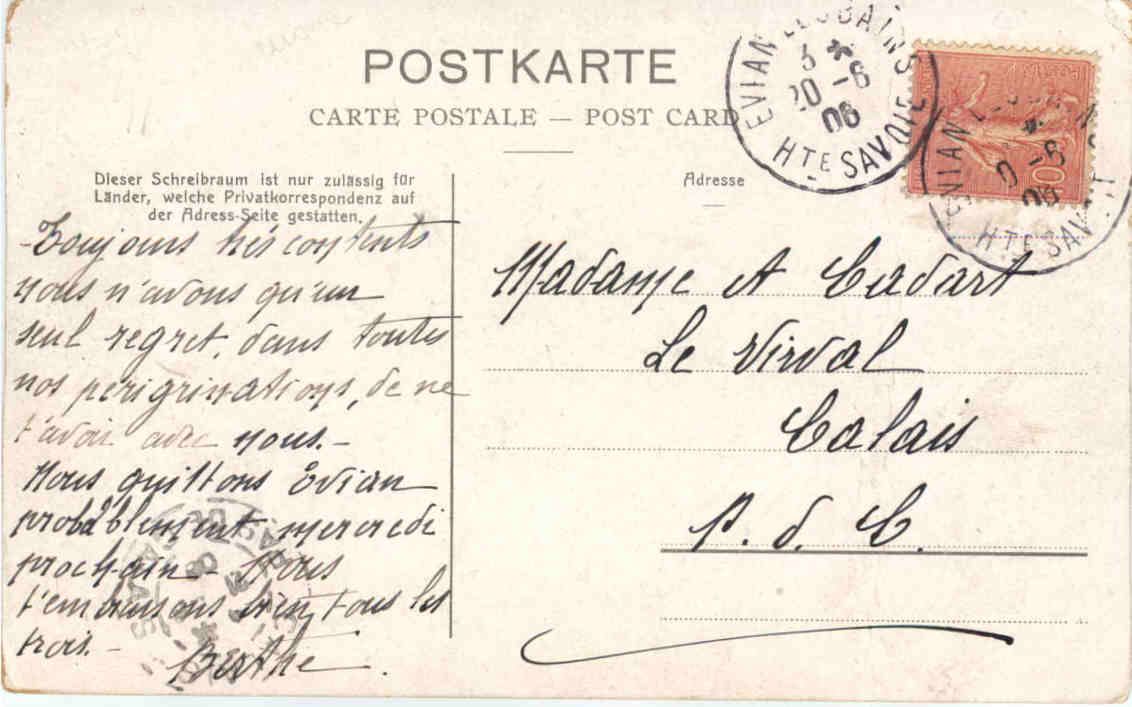 POSTKARTE
CARTE POSTALE — POST CARD
EVIAN LES BAINS
3 *
20 -6
06
HTE SAVOIE
EVIAN LES BAINS
*
0 -6
06
HTE SAVOIE
10
Dieser Schreibraum ist nur zulässig für
Länder, welche Privatkorrespondenz auf
der Adress-Seite gestatten.
Adresse
Toujours très contents
nous n'avons qu'un
seul regret, dans toutes
nos pérégrinations, de ne
t'avoir avec nous.-
Nous quittons Evian
probablement mercredi
prochain - Nous
t'embrassons bien tous les
trois. -
Berthe.
Madame A Cadart
Le Virval
Calais
P. d. C.